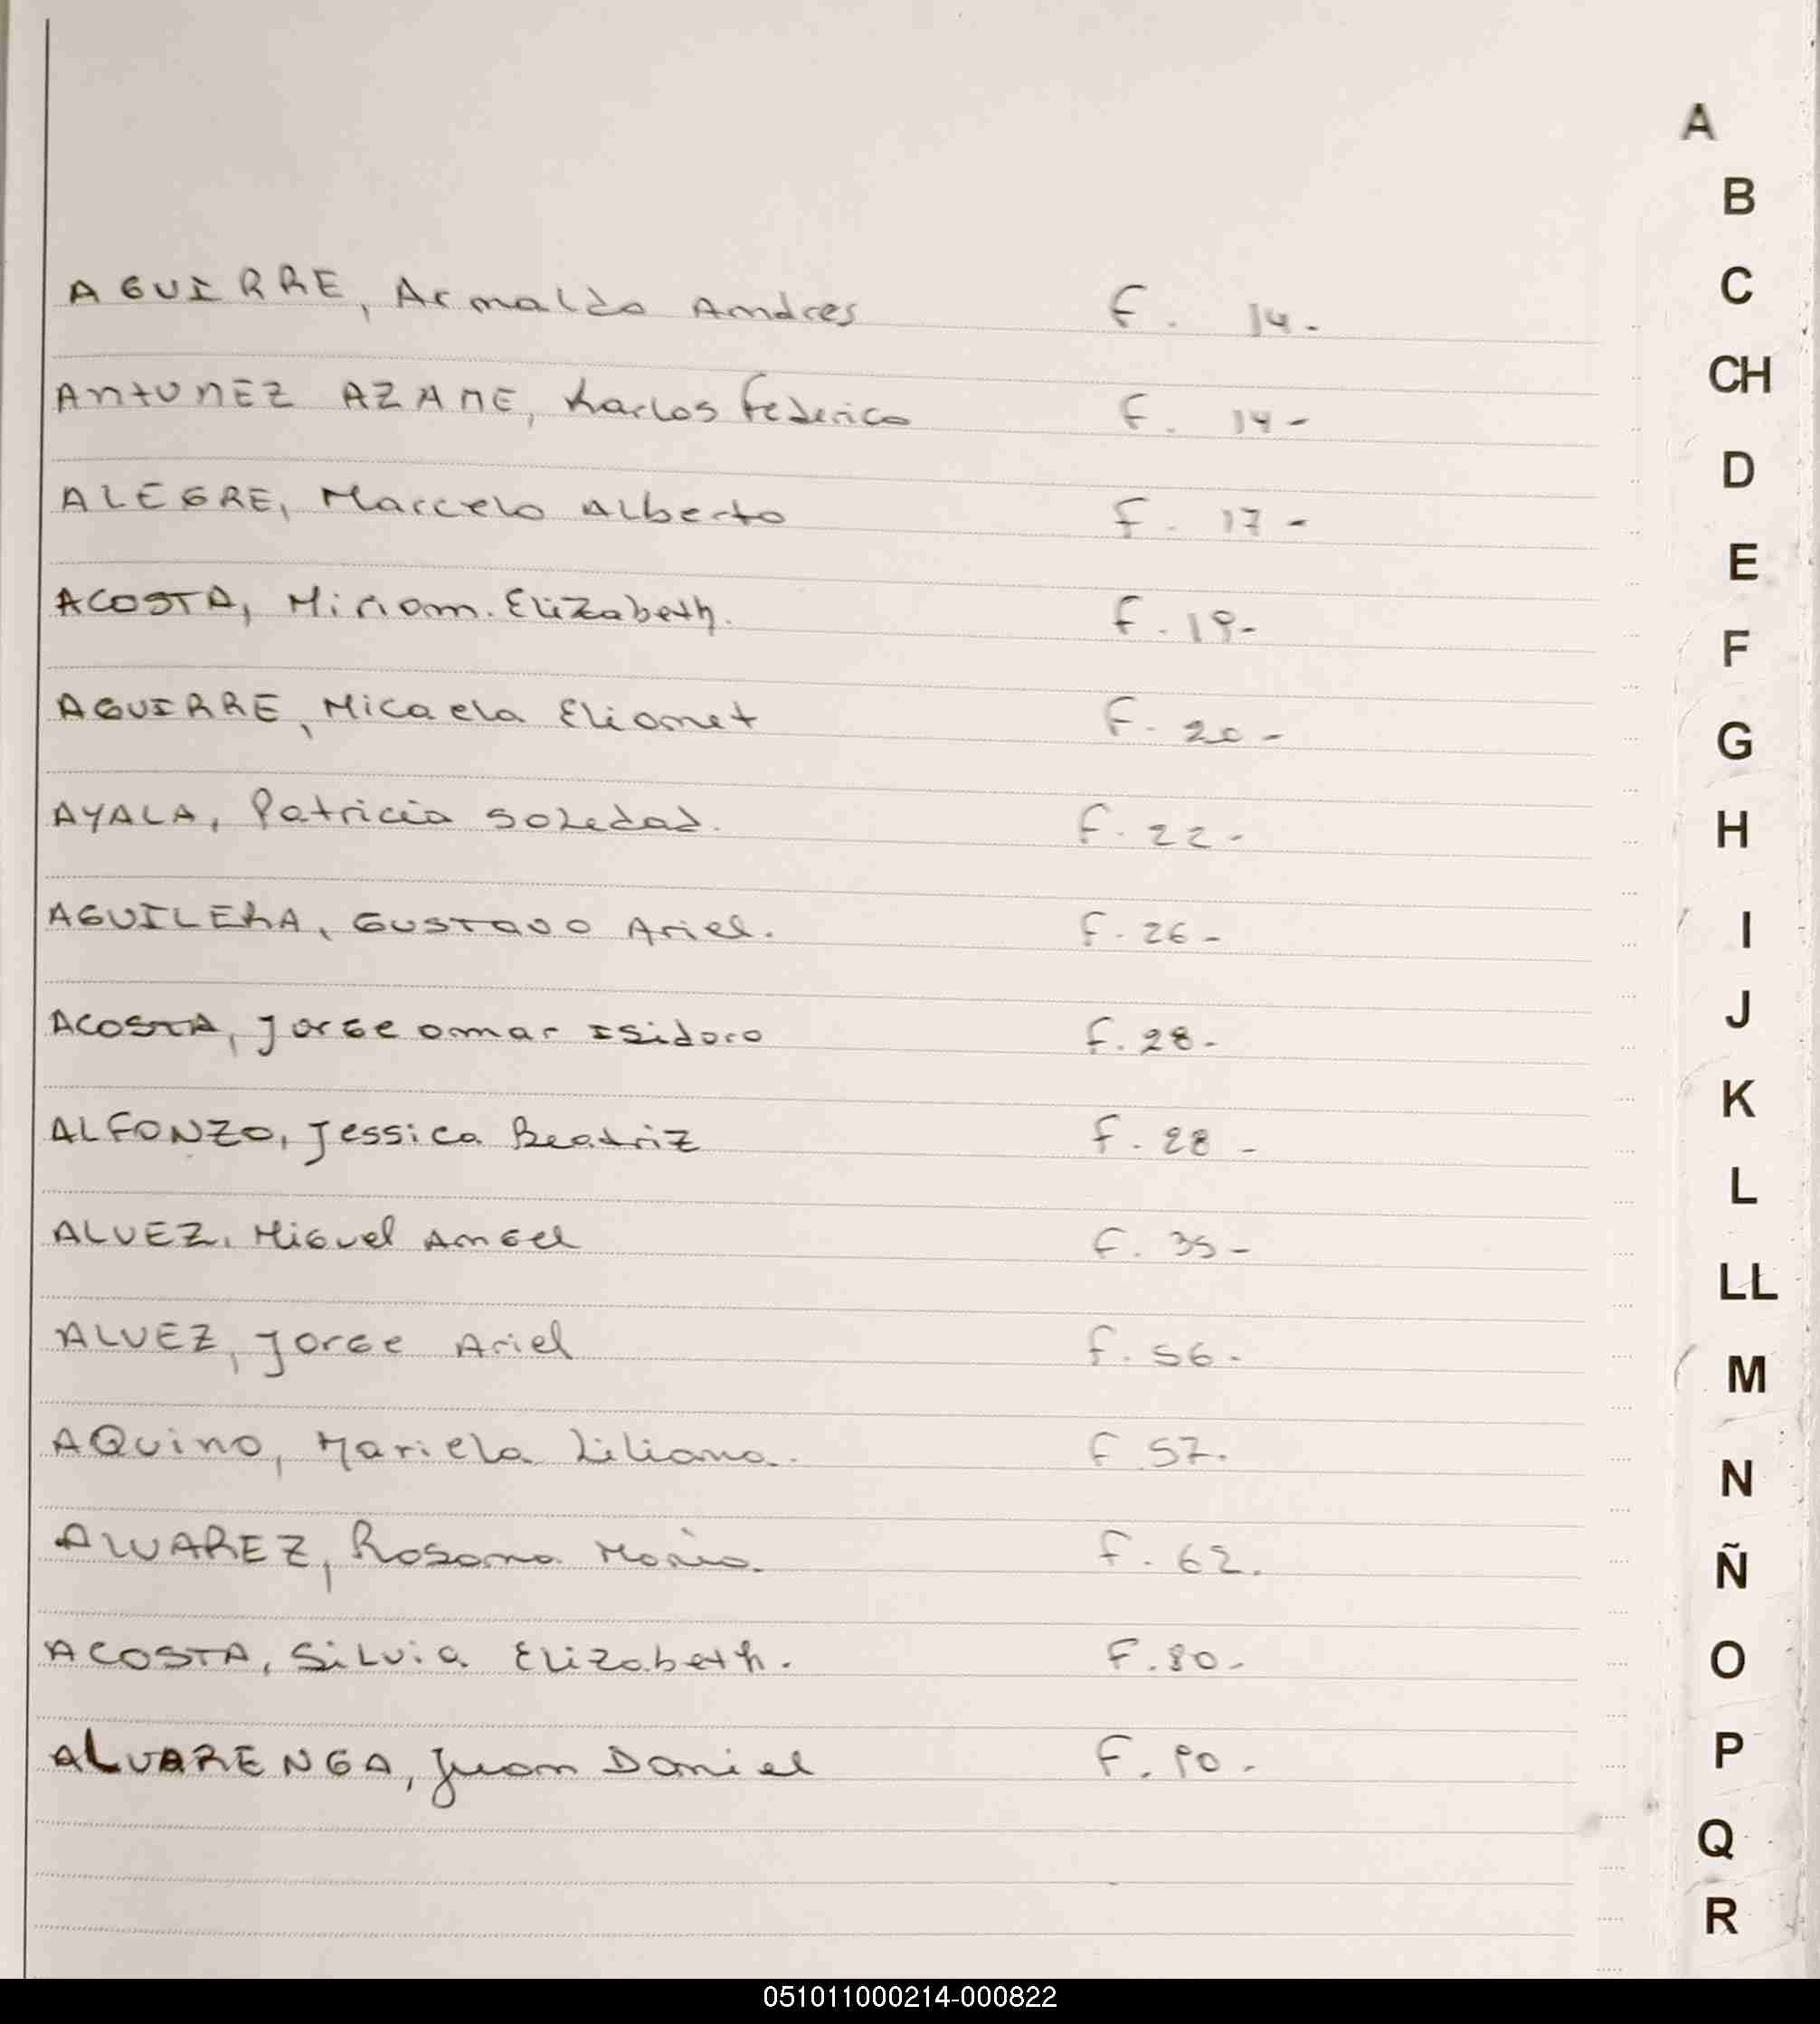 AGUIRRE, Arnaldo Andres F. 14.
ANTUNEZ AZAME, Karlos Federico F. 14-
ALEGRE, Marcelo Alberto F. 17-
ACOSTA, Miriam. Elizabeth. F. 19-
AGUIRRE, Micaela Elianet F. 20-
AYALA, Patricia Soledad. F. 22-
AGUILERA, GUSTAVO Ariel. F. 26-
ACOSTA, Jorge omar Isidoro F. 28-
ALFONZO, Jessica Beatriz F. 28-
ALVEZ, Miguel Angel F. 35-
ALVEZ, Jorge Ariel F. 56-
AQuino, Mariela Liliana. F 57.
ALVAREZ, Rosana Maria. F. 62.
ACOSTA, Silvia Elizabeth. F. 80-
ALVARENGA, Juan Daniel F. 90.
A
B
C
CH
D
E
F
G
H
I
J
K
L
LL
M
N
Ñ
O
P
Q
R
051011000214-000822